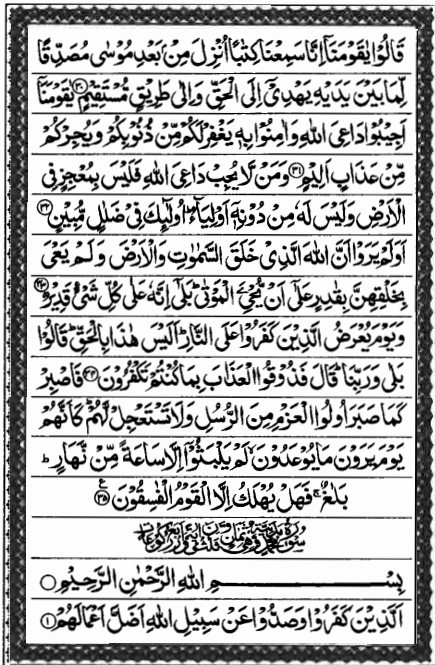 قَالُوْا يٰقَوْمَنَاۤ اِنَّا سَمِعْنَا كِتٰبًا اُنْزِلَ مِنْۢ بَعْدِ مُوْسٰى مُصَدِّقًا
لِّمَا بَيْنَ يَدَيْهِ يَهْدِیْۤ اِلَى الْحَقِّ وَاِلٰى طَرِيْقٍ مُّسْتَقِيْمٍ ۳۰ يٰقَوْمَنَاۤ
اَجِيْبُوْا دَاعِیَ اللّٰهِ وَاٰمِنُوْا بِهٖ يَغْفِرْ لَكُمْ مِّنْ ذُنُوْبِكُمْ وَيُجِرْكُمْ
مِّنْ عَذَابٍ اَلِيْمٍ ۳۱ وَمَنْ لَّا يُجِبْ دَاعِیَ اللّٰهِ فَلَيْسَ بِمُعْجِزٍ فِی
الْاَرْضِ وَلَيْسَ لَهٗ مِنْ دُوْنِهٖۤ اَوْلِيَآءُ ؕ اُولٰٓئِكَ فِیْ ضَلٰلٍ مُّبِيْنٍ ۳۲
اَوَلَمْ يَرَوْا اَنَّ اللّٰهَ الَّذِیْ خَلَقَ السَّمٰوٰتِ وَالْاَرْضَ وَلَمْ يَعْیَ
بِخَلْقِهِنَّ بِقٰدِرٍ عَلٰۤى اَنْ يُّحْیِۦَ الْمَوْتٰى ؕ بَلٰۤى اِنَّهٗ عَلٰى كُلِّ شَیْءٍ قَدِيْرٌ ۳۳
وَيَوْمَ يُعْرَضُ الَّذِيْنَ كَفَرُوْا عَلَى النَّارِ ؕ اَلَيْسَ هٰذَا بِالْحَقِّ ؕ قَالُوْا
بَلٰى وَرَبِّنَا ؕ قَالَ فَذُوْقُوا الْعَذَابَ بِمَا كُنْتُمْ تَكْفُرُوْنَ ۳۴ فَاصْبِرْ
كَمَا صَبَرَ اُولُوا الْعَزْمِ مِنَ الرُّسُلِ وَلَا تَسْتَعْجِلْ لَّهُمْ ؕ كَاَنَّهُمْ
يَوْمَ يَرَوْنَ مَا يُوْعَدُوْنَ ۙ لَمْ يَلْبَثُوْۤا اِلَّا سَاعَةً مِّنْ نَّهَارٍ ؕ
بَلٰغٌ ۚ فَهَلْ يُهْلَكُ اِلَّا الْقَوْمُ الْفٰسِقُوْنَ ۳۵ ع
بِسْمِ اللّٰهِ الرَّحْمٰنِ الرَّحِيْمِ
اَلَّذِيْنَ كَفَرُوْا وَصَدُّوْا عَنْ سَبِيْلِ اللّٰهِ اَضَلَّ اَعْمَالَهُمْ ۱